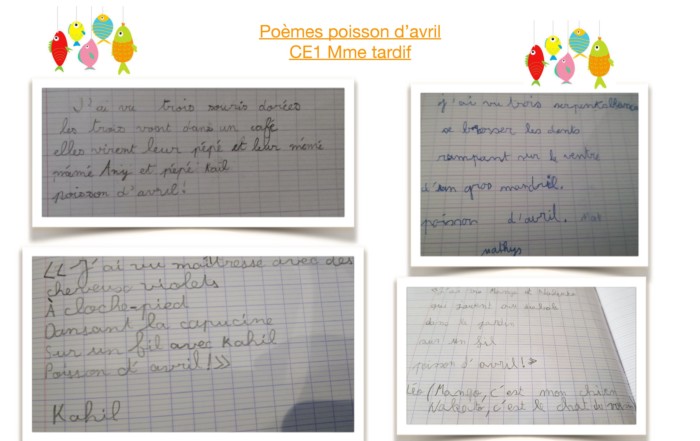 Poèmes poisson d'avril
CE1 Mme tardif
J'ai vu trois souris dorées
les trois vont dans un café
elles virent leur pépé et leur mémé
mémé Any et pépé Kail
poisson d'avril !
j'ai vu trois
se brosser les dents
rampant sur le ventre
d'un gros mandril.
poisson d'avril.
mathys
« J'ai vu maîtresse avec des
cheveux violets
À cloche-pied
Dansant la capucine
Sur un fil avec Kahil
Poisson d'avril ! »
Kahil
J'ai vu Mango et
qui
dans le jardin
sur un fil
poisson d'avril ! »
Léo (Mango, c'est mon chien
c'est le chat de